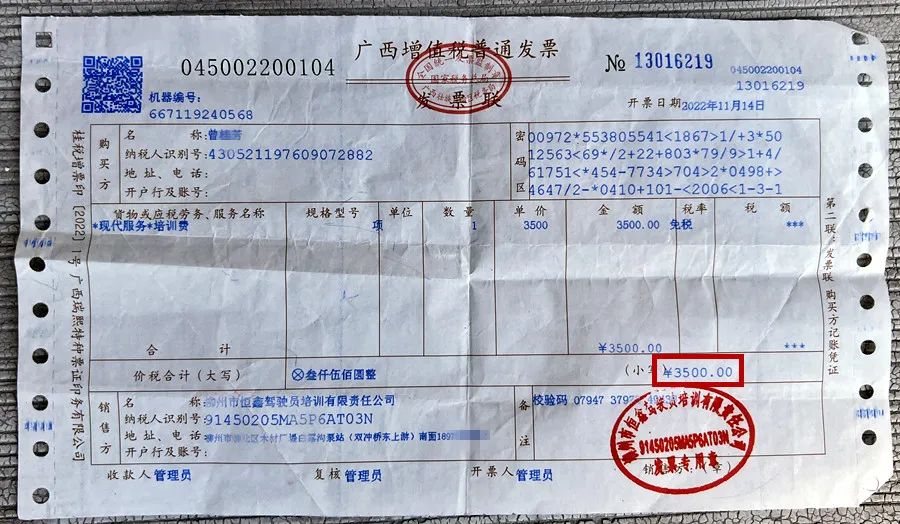 广西增值税普通发票
发票联
全国统一发票监制章
国家税务总局
045002200104
№ 13016219
045002200104
13016219
机器编号:
667119240568
开票日期 2022年11月14日
桂税增票印〔2022〕1号广西瑞熙特种票证印务有限公司
购买方
名称:曾
纳税人识别号:430521197609072882
地址、电话:
开户行及账号:
密码区
00972*553805541<1867>1/+3*50
12563<69*/2+22+803*79/9>1+4/
61751<*454-7734>704>2*0498+>
4647/2-*0410+101-<2006<1-3-1
货物或应税劳务、服务名称 规格型号 单位 数量 单价 金额 税率 税额
*现代服务*培训费 项 1 3500 3500.00 免税 ***
合计 ¥3500.00 ***
价税合计(大写) ⊗叁仟伍佰圆整 (小写) ¥3500.00
销售方
名称:柳州市恒鑫驾驶员培训有限责任公司
纳税人识别号:91450205MA5P6AT03N
地址、电话:柳州市 北区木材厂 白露沟泵站(双冲桥东上游)南面
开户行及账号:
备注
校验码 07947
柳州市恒鑫驾驶员培训有限责任公司
91450205MA5P6AT03N
发票专用章
收款人 管理员 复核 管理员 开票人 管理员 销售方(章)
第二联:发票联 购买方记账凭证